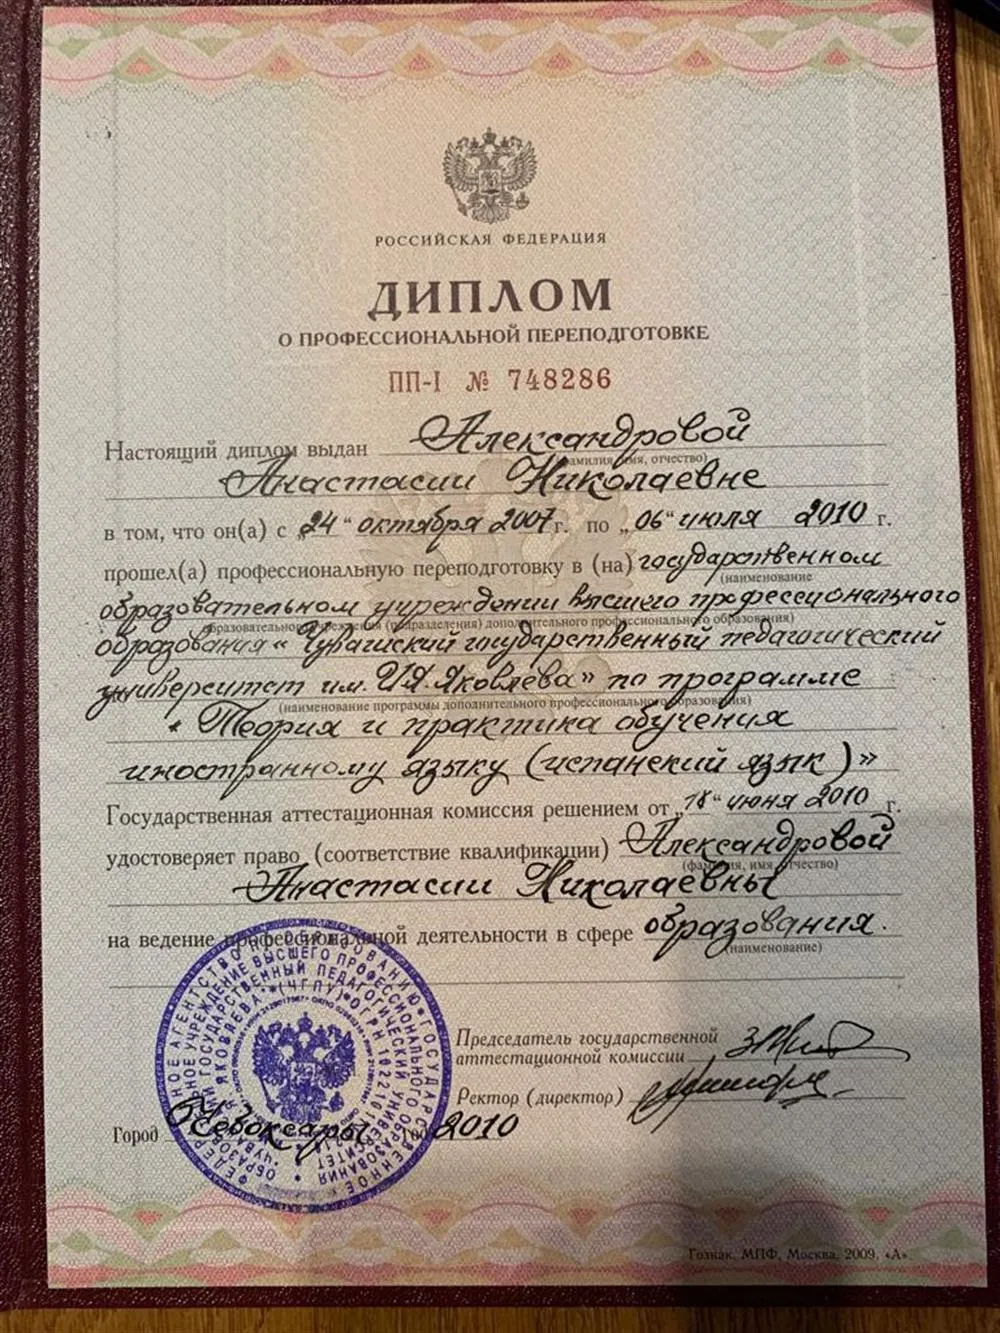 РОССИЙСКАЯ ФЕДЕРАЦИЯ
ДИПЛОМ
О ПРОФЕССИОНАЛЬНОЙ ПЕРЕПОДГОТОВКЕ
ПП-I № 748286
Настоящий диплом выдан Александровой
(фамилия, имя, отчество)
Анастасии Николаевне
в том, что он(а) с „24“ октября 2007 г. по „06“ июля 2010 г.
прошел(а) профессиональную переподготовку в (на) государственном
(наименование
образовательном учреждении высшего профессионального
образовательного учреждения (подразделения) дополнительного профессионального образования)
образования «Чувашский государственный педагогический
университет им. И.Я. Яковлева» по программе
(наименование программы дополнительного профессионального образования)
«Теория и практика обучения
иностранному языку (испанский язык)»
Государственная аттестационная комиссия решением от „18“ июня 2010 г.
удостоверяет право (соответствие квалификации) Александровой
(фамилия, имя, отчество)
Анастасии Николаевны
на ведение профессиональной деятельности в сфере образования.
(наименование)
Председатель государственной
аттестационной комиссии
Ректор (директор)
Город Чебоксары год 2010
Гознак, МПФ, Москва, 2009, «А».